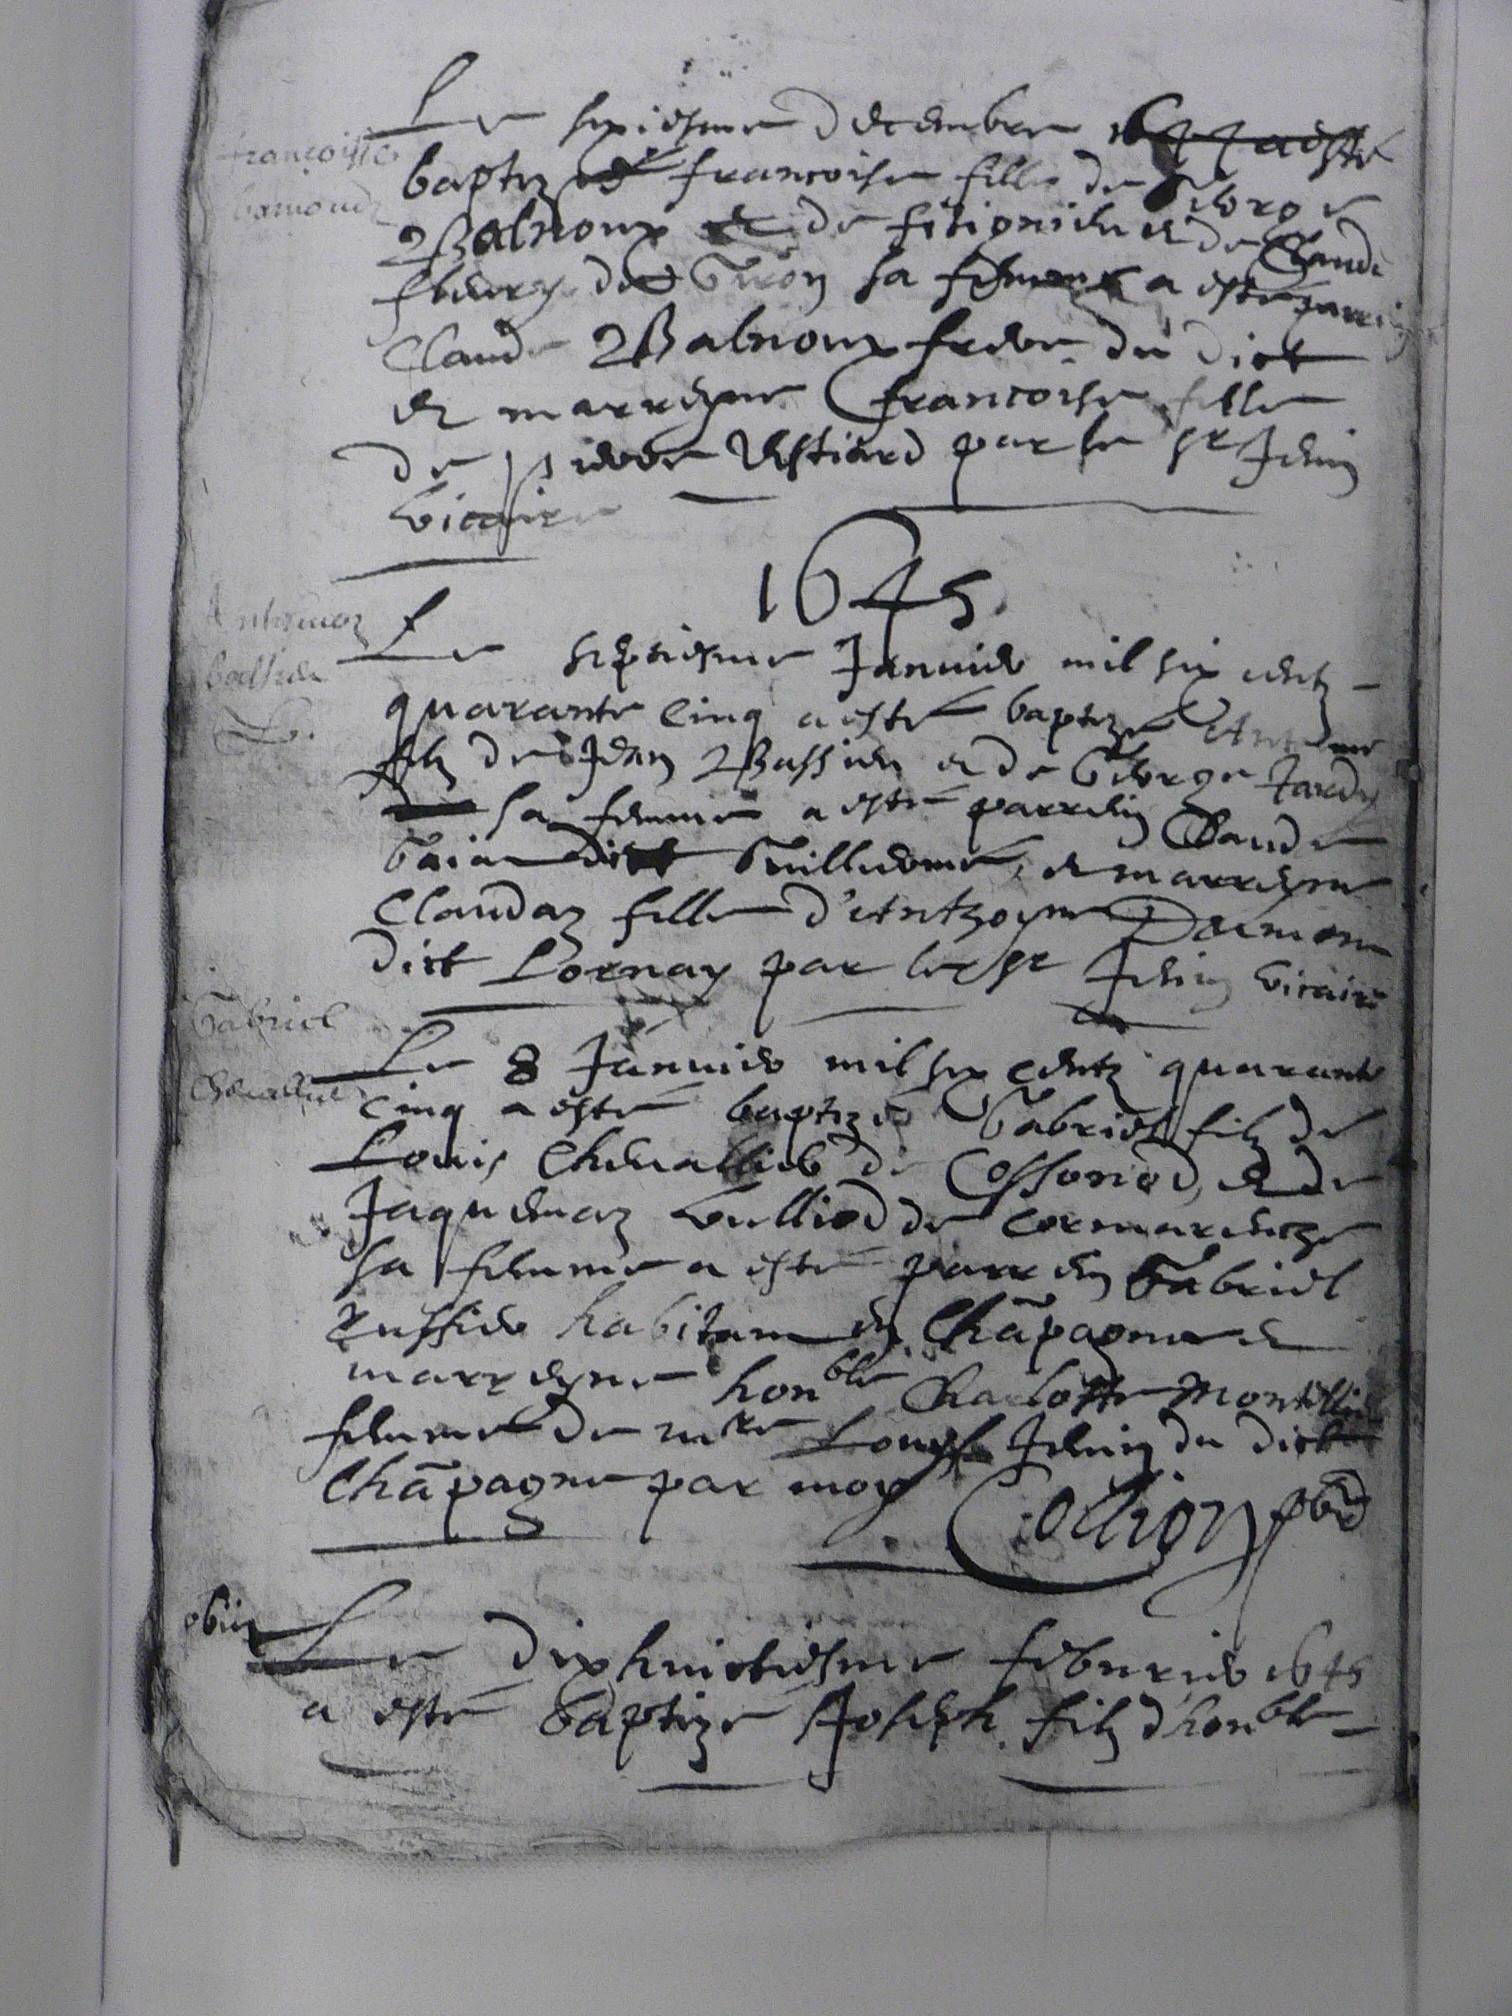 Le sixiesme decembre 1644 a esté
baptizée francoise fille de George
Balnoux de fitignieu et de Claude
fleury de Giron sa femme a esté parrein
Claude Balnoux frere du dict
et marreyne francoise fille
de pierre Vestiard par le sr Jenin
vicaire
1645
Anthoine
Le septiesme Januier mil six centz
quarante cinq a esté baptizé Anthoyne
filz de Jean Bassieu et de George Jardy
sa femme a esté parrein Claude
dict Guillierme, et marreyne
Claudaz fille d'Anthoyne
dict Lornay par le sr Jenin vicaire
Gabriel
Cheuallier
Le 8 Januier mil six centz quarante
cinq a esté baptizé Gabriel filz de
Louis Cheuallier de Cossonod, et de
Jaquemaz vulliod de Cormarenche
sa femme a esté parrein Gabriel
Russier habitant en Chāpagne et
marreyne honble Charlotte Montillier
femme de mre Louys Jenin du dict
Chāpagne par moy Collion pbre
obiit
Le dixhuictiesme feburier 1645
a esté baptize Joseph filz d'honble